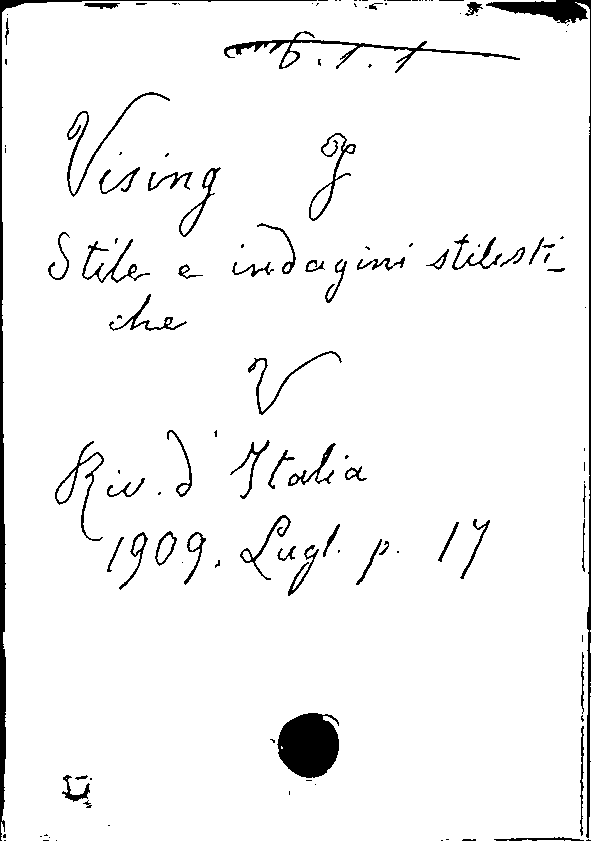 6.1.1
Vising J
Stile e indagini stilisti-
che
V
Riv. d'Italia
1909. Lugl. p. 17